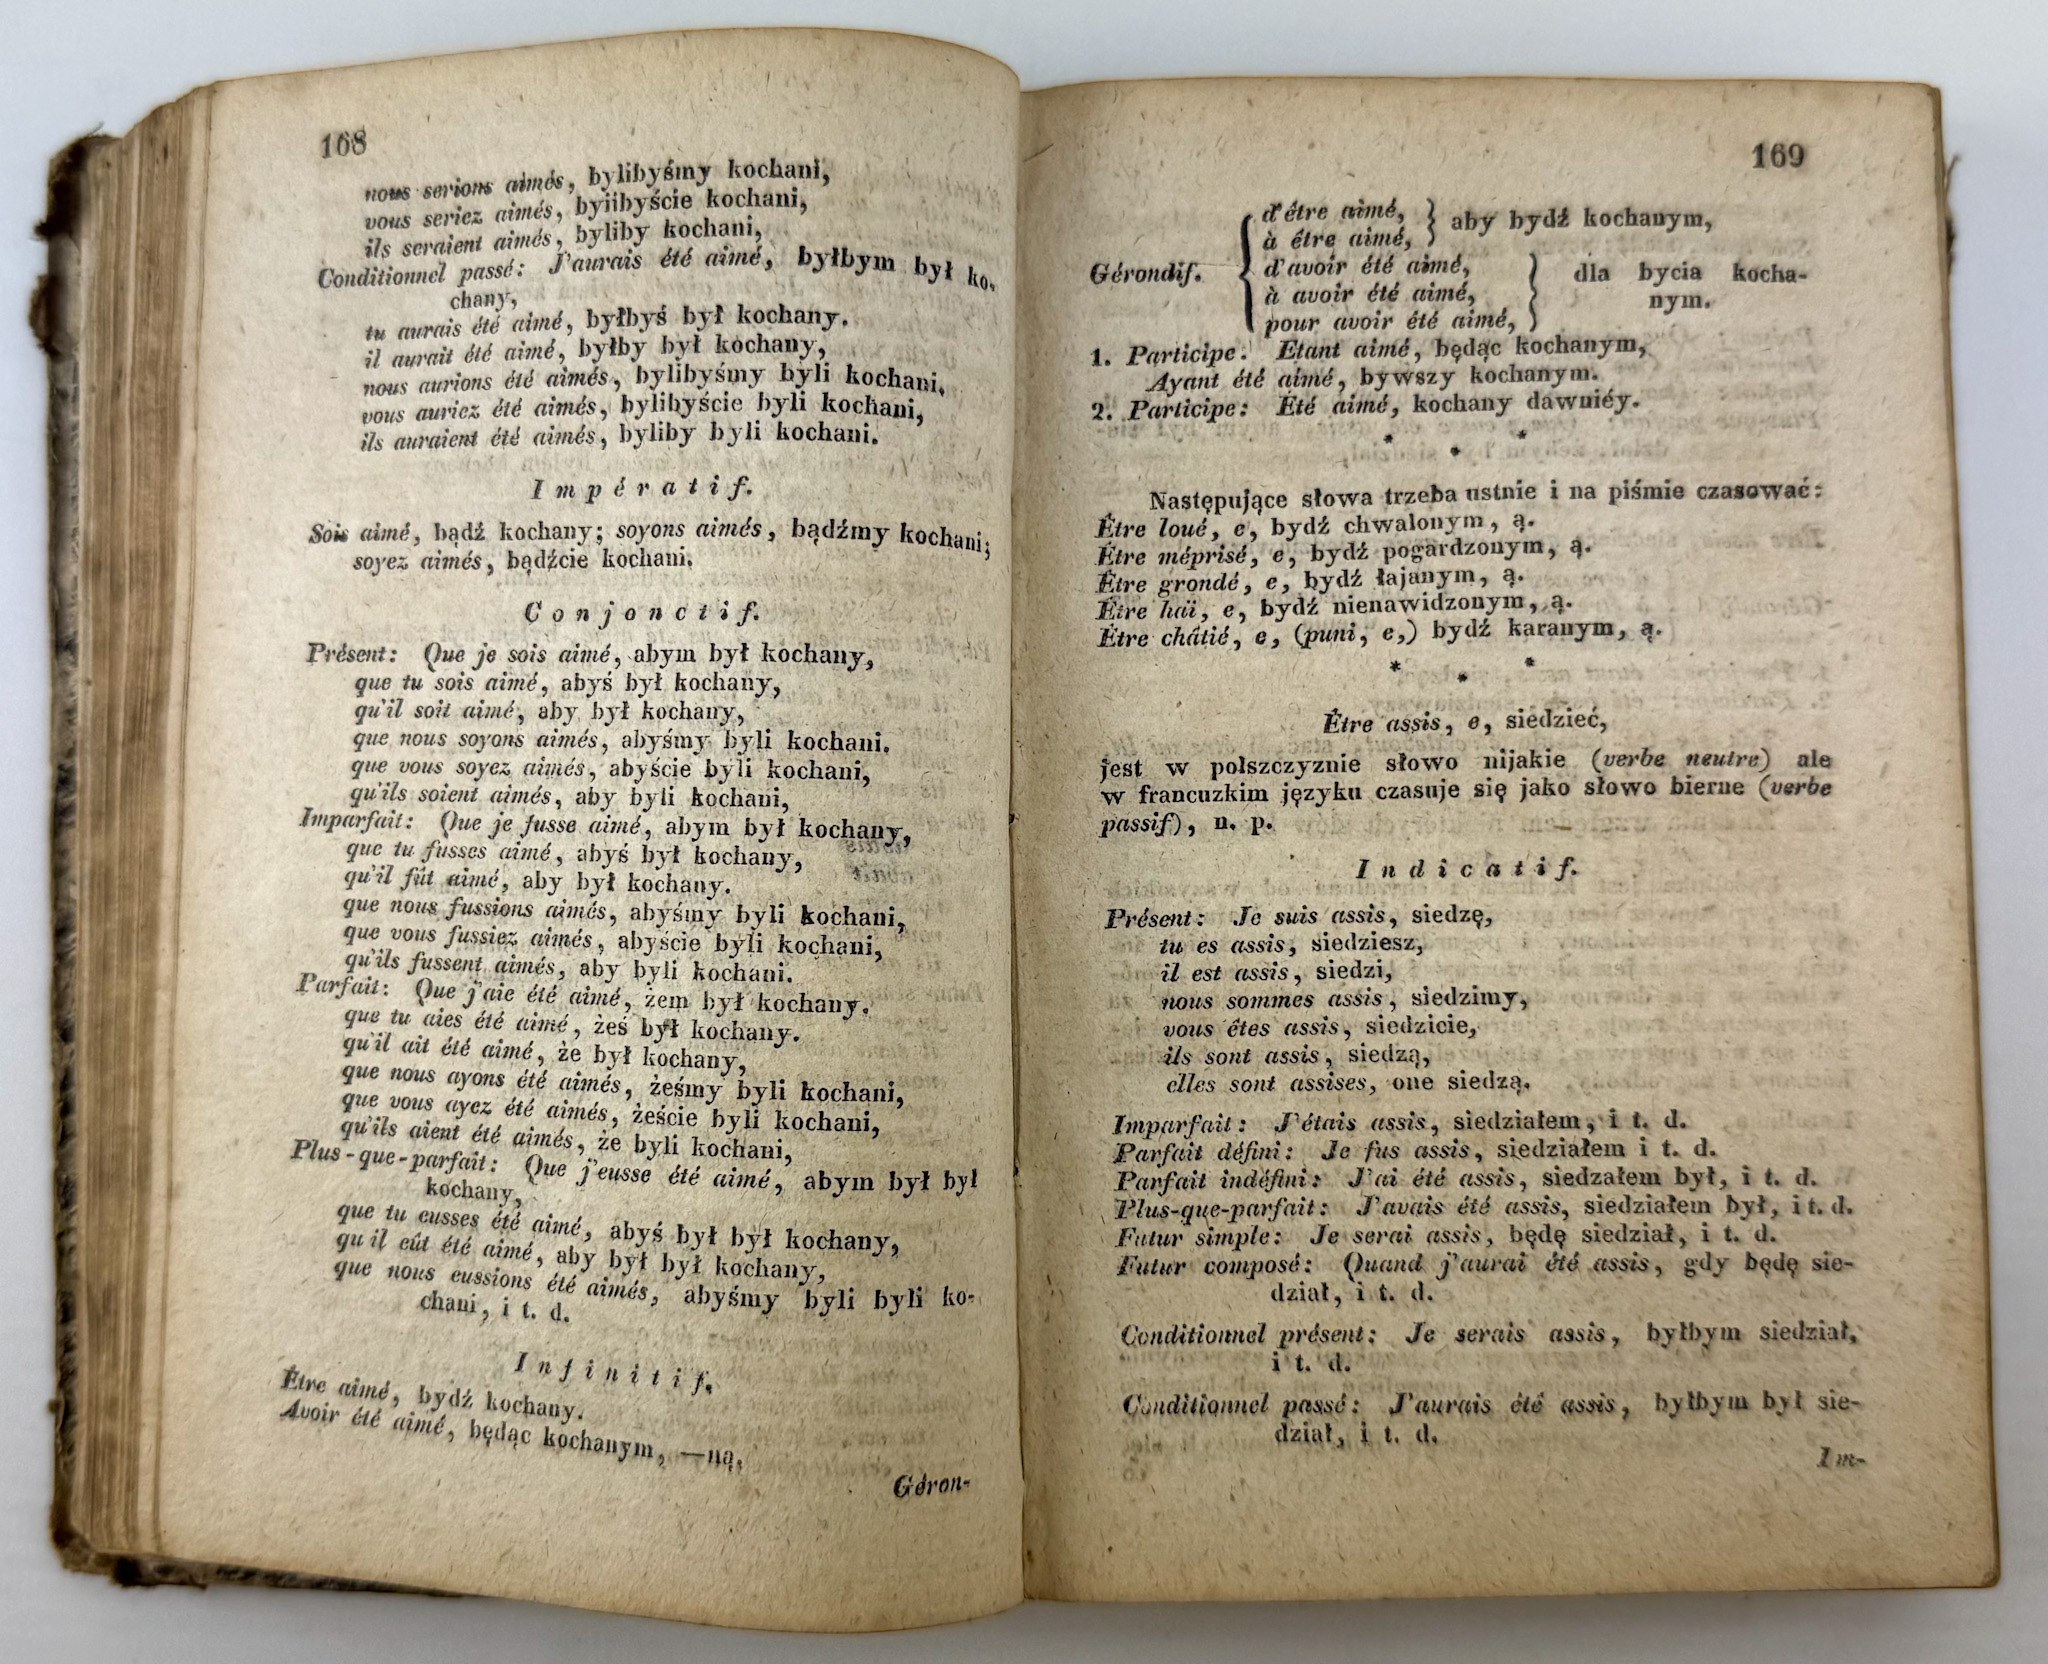 168
nous serions aimés, bylibyśmy kochani,
vous seriez aimés, byiibyście kochani,
ils seraient aimés, byliby kochani,
Conditionnel passé: J'aurais été aimé, byłbym był ko-
chany,
tu aurais été aimé, byłbyś był kochany.
il aurait été aimé, byłby był kochany,
nous aurions été aimés, bylibyśmy byli kochani,
vous auriez été aimés, bylibyście byli kochani,
ils auraient été aimés, byliby byli kochani.
Impératif.
Sois aimé, bądź kochany; soyons aimés, bądźmy kochani;
soyez aimés, bądźcie kochani.
Conjonctif.
Présent: Que je sois aimé, abym był kochany,
que tu sois aimé, abyś był kochany,
qu'il soit aimé, aby był kochany,
que nous soyons aimés, abyśmy byli kochani.
que vous soyez aimés, abyście byli kochani,
qu'ils soient aimés, aby byli kochani,
Imparfait: Que je fusse aimé, abym był kochany,
que tu fusses aimé, abyś był kochany,
qu'il fût aimé, aby był kochany.
que nous fussions aimés, abyśmy byli kochani,
que vous fussiez aimés, abyście byli kochani,
qu'ils fussent aimés, aby byli kochani.
Parfait: Que j'aie été aimé, żem był kochany.
que tu aies été aimé, żeś był kochany.
qu'il ait été aimé, że był kochany,
que nous ayons été aimés, żeśmy byli kochani,
que vous ayez été aimés, żeście byli kochani,
qu'ils aient été aimés, że byli kochani,
Plus-que-parfait: Que j'eusse été aimé, abym był był
kochany,
que tu eusses été aimé, abyś był był kochany,
qu'il eût été aimé, aby był był kochany,
que nous eussions été aimés, abyśmy byli byli ko-
chani, i t. d.
Infinitif.
Être aimé, bydź kochany.
Avoir été aimé, będąc kochanym, —ną.
Géron-
169
d'être aimé,
à être aimé, } aby bydź kochanym,
Gérondif. { d'avoir été aimé,
à avoir été aimé, } dla bycia kocha-
pour avoir été aimé, nym.
1. Participe: Etant aimé, będąc kochanym,
Ayant été aimé, bywszy kochanym.
2. Participe: Été aimé, kochany dawniéy.
* * *
Następujące słowa trzeba ustnie i na piśmie czasować:
Être loué, e, bydź chwalonym, ą.
Être méprisé, e, bydź pogardzonym, ą.
Être grondé, e, bydź łajanym, ą.
Être haï, e, bydź nienawidzonym, ą.
Être châtié, e, (puni, e,) bydź karanym, ą.
* * *
Être assis, e, siedzieć,
jest w polszczyznie słowo nijakie (verbe neutre) ale
w francuzkim języku czasuje się jako słowo bierne (verbe
passif), n. p.
Indicatif.
Présent: Je suis assis, siedzę,
tu es assis, siedziesz,
il est assis, siedzi,
nous sommes assis, siedzimy,
vous êtes assis, siedzicie,
ils sont assis, siedzą,
elles sont assises, one siedzą.
Imparfait: J'étais assis, siedziałem, i t. d.
Parfait défini: Je fus assis, siedziałem i t. d.
Parfait indéfini: J'ai été assis, siedzałem był, i t. d.
Plus-que-parfait: J'avais été assis, siedziałem był, i t. d.
Futur simple: Je serai assis, będę siedział, i t. d.
Futur composé: Quand j'aurai été assis, gdy będę sie-
dział, i t. d.
Conditionnel présent: Je serais assis, byłbym siedział,
i t. d.
Conditionnel passé: J'aurais été assis, byłbym był sie-
dział, i t. d.
Im-